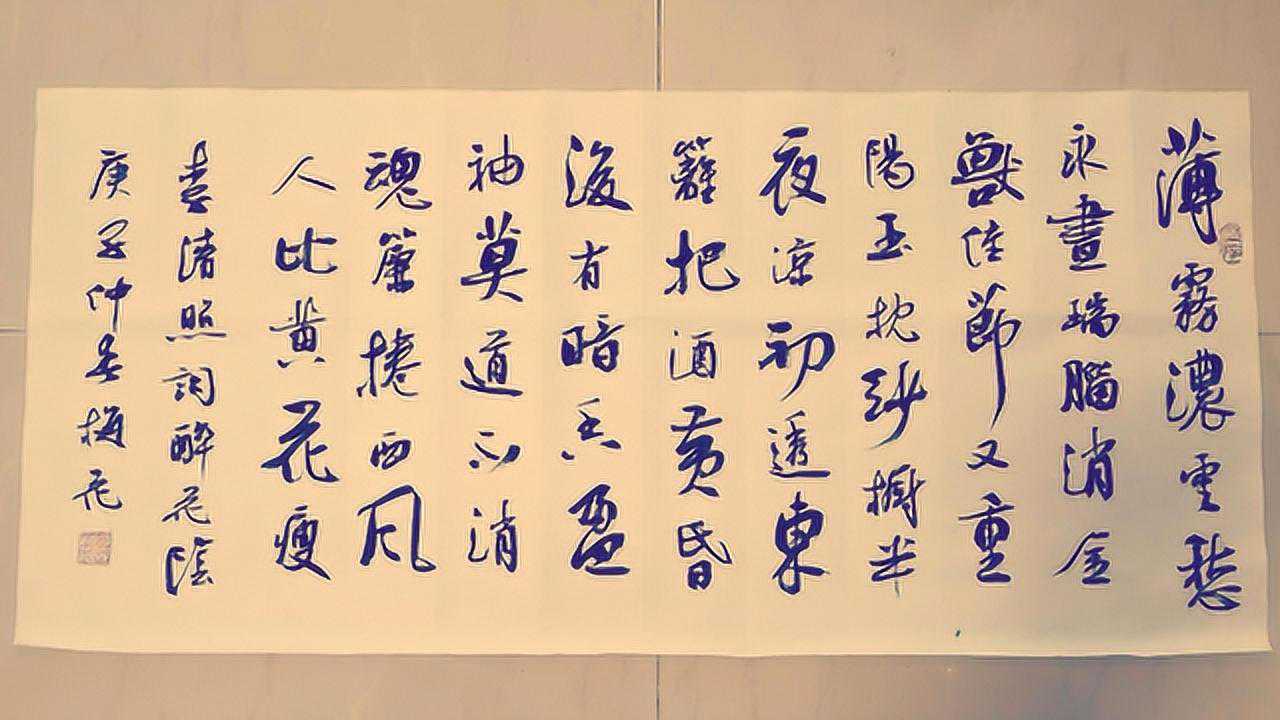 薄霧濃雲愁
永晝瑞腦消金
獸佳節又重
陽玉枕紗櫥半
夜涼初透東
籬把酒黃昏
後有暗香盈
袖莫道不消
魂簾捲西風
人比黃花瘦
李清照詞醉花陰
庚子仲春梅花